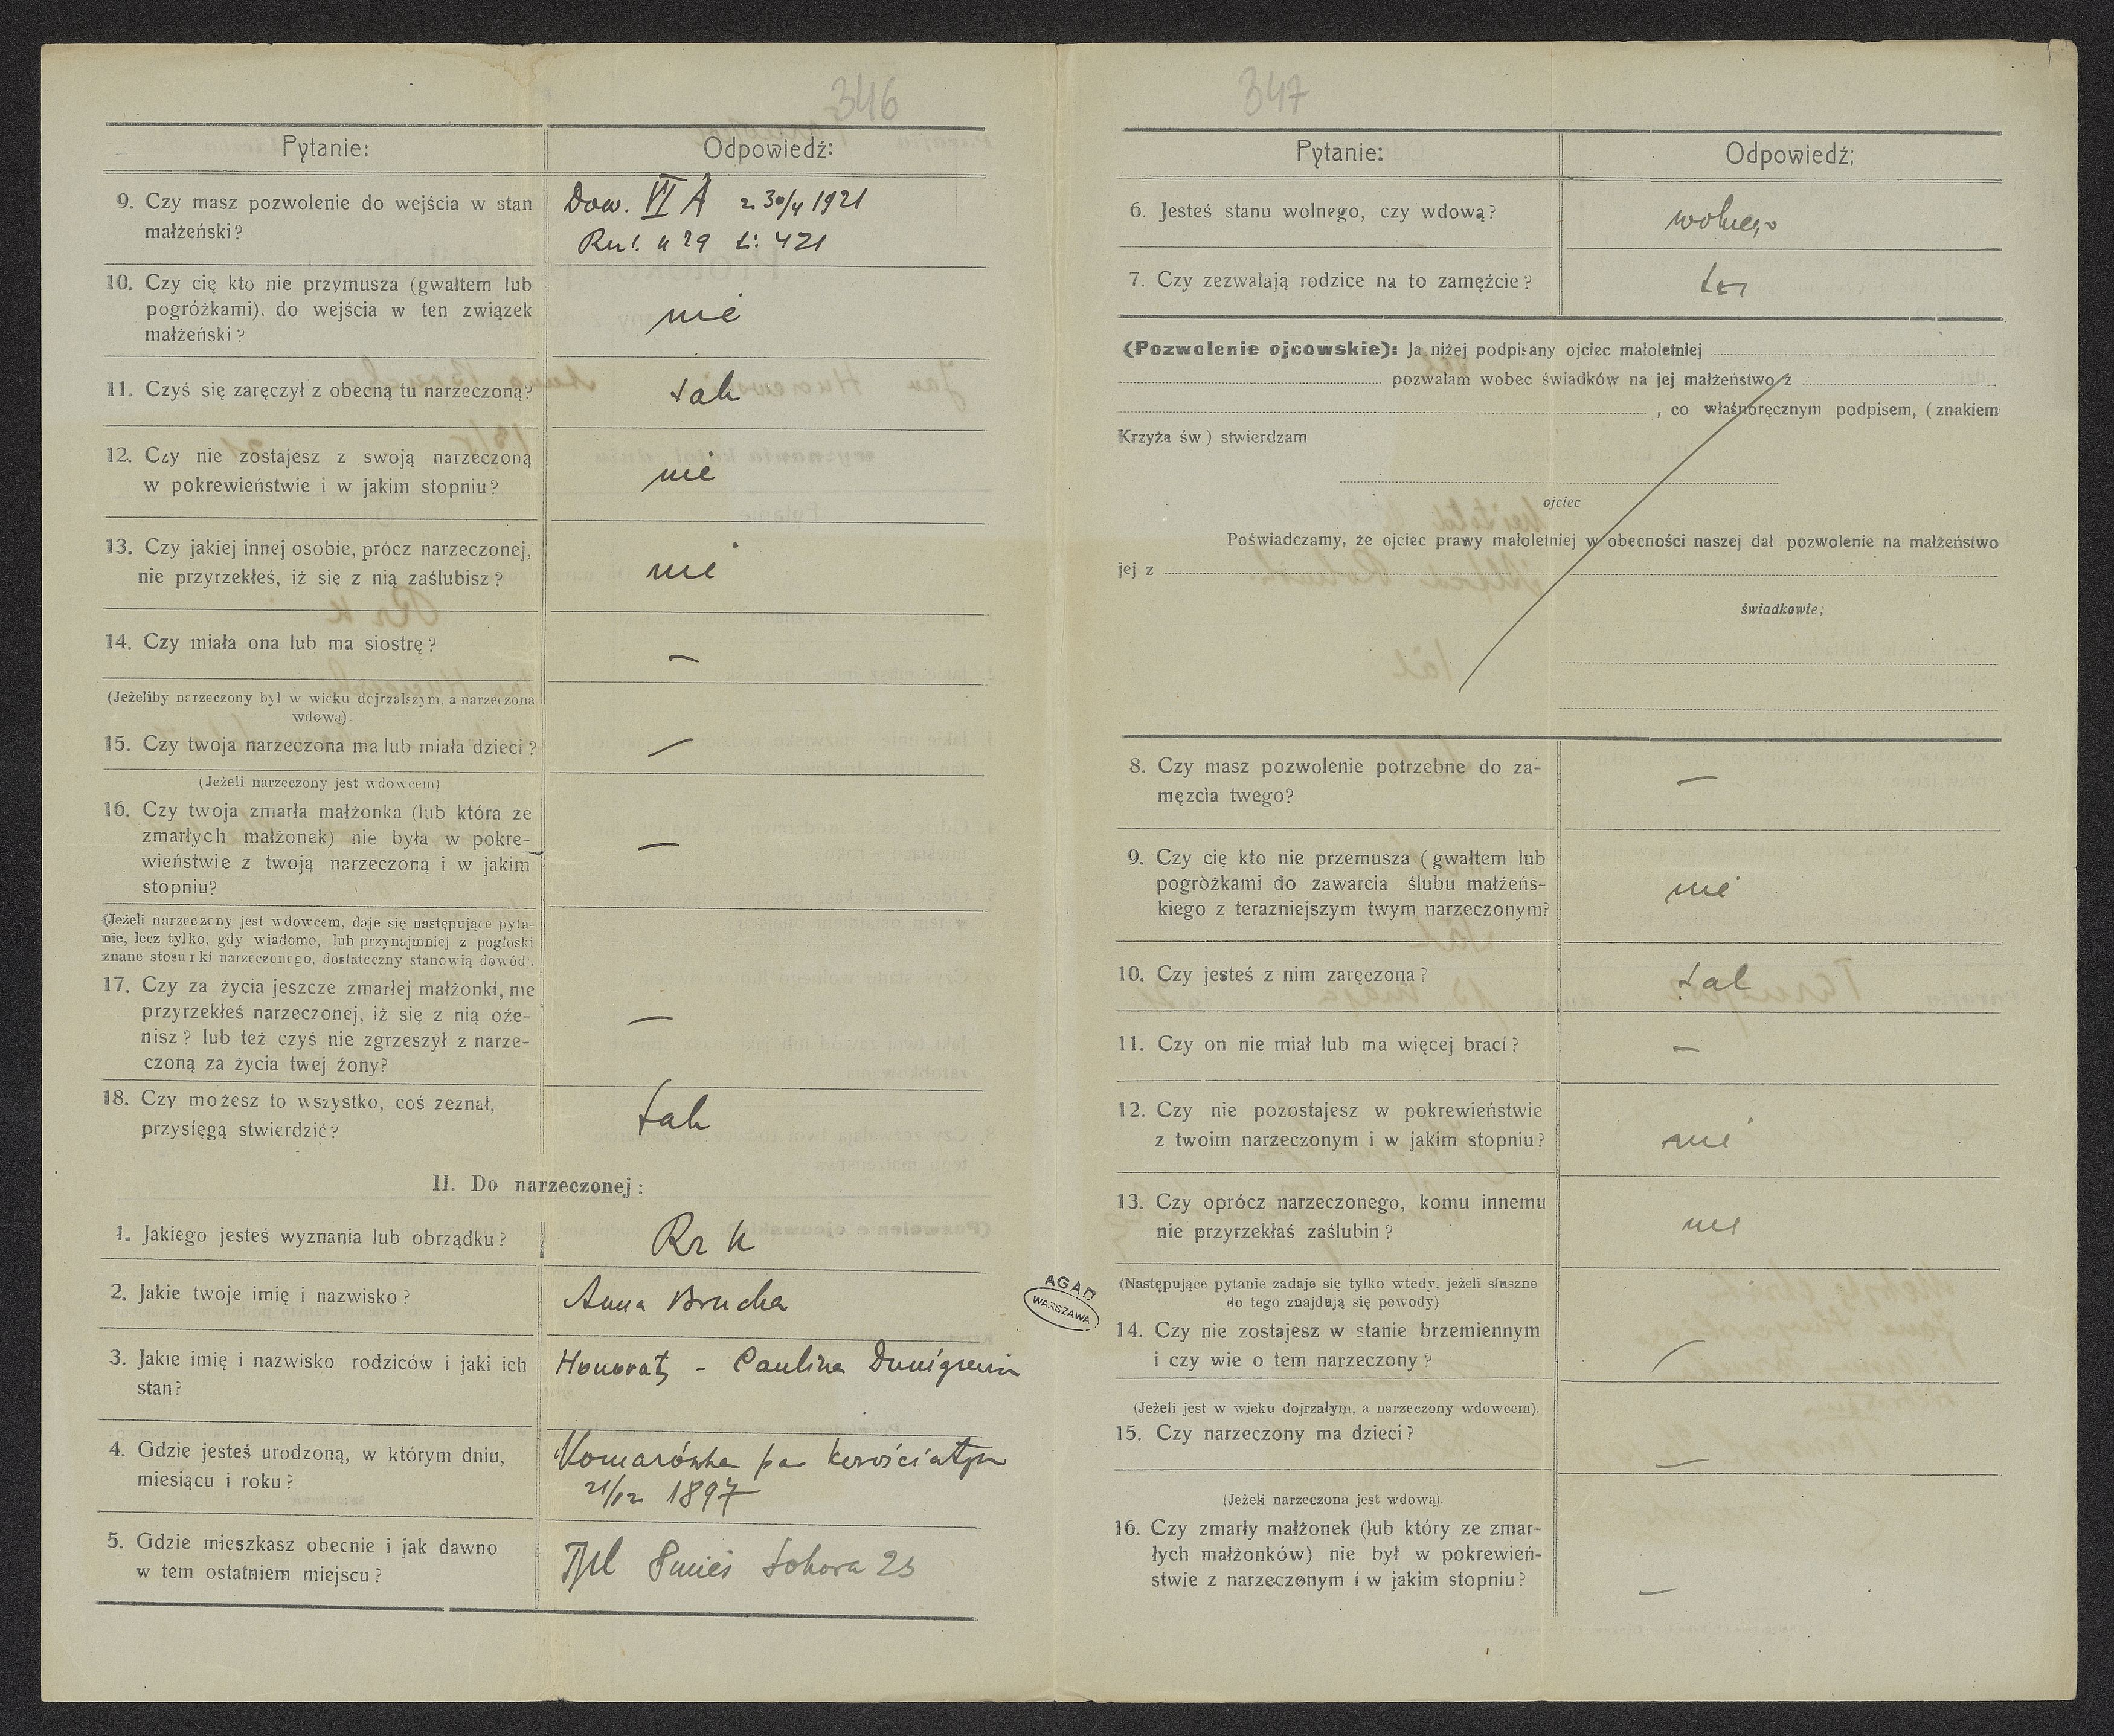 346
Pytanie:
Odpowiedź:
9. Czy masz pozwolenie do wejścia w stan
małżeński?
Dow. VI A z 30/4 1921
421
10. Czy cię kto nie przymusza (gwałtem lub
pogróżkami), do wejścia w ten związek
małżeński?
nie
11. Czyś się zaręczył z obecną tu narzeczoną?
tak
12. Czy nie zostajesz z swoją narzeczoną
w pokrewieństwie i w jakim stopniu?
nie
13. Czy jakiej innej osobie, prócz narzeczonej,
nie przyrzekłeś, iż sie z nią zaślubisz?
nie
14. Czy miała ona lub ma siostrę?
—
(Jeżeliby narzeczony był w wieku dojrzalszym, a narzeczona
wdową)
15. Czy twoja narzeczona ma lub miała dzieci?
—
(Jeżeli narzeczony jest wdowcem)
16. Czy twoja zmarła małżonka (lub która ze
zmarłych małżonek) nie była w pokre-
wieństwie z twoją narzeczoną i w jakim
stopniu?
—
(Jeżeli narzeczony jest wdowcem, daje się następujące pyta-
nie, lecz tylko, gdy wiadome, lub przynajmniej z pogłoski
znane stosunki narzeczonego, dostateczny stanowią dowód).
17. Czy za życia jeszcze zmarłej małżonki, nie
przyrzekłeś narzeczonej, iż się z nią oże-
nisz? lub też czyś nie zgrzeszył z narze-
czoną za życia twej żony?
—
18. Czy możesz to wszystko, coś zeznał,
przysięgą stwierdzić?
tak
II. Do narzeczonej:
1. Jakiego jesteś wyznania lub obrządku?
Rz k
2. Jakie twoje imię i nazwisko?
Anna Brucha
3. Jakie imię i nazwisko rodziców i jaki ich
stan?
Honorat - Paulina
4. Gdzie jesteś urodzoną, w którym dniu,
miesiącu i roku?
Komarówka par Korościatyn
21/12 1897
5. Gdzie mieszkasz obecnie i jak dawno
w tem ostatniem miejscu?
Tpl 23
AGAD
WARSZAWA
347
Pytanie:
Odpowiedź;
6. Jesteś stanu wolnego, czy wdową?
wolnego
7. Czy zezwalają rodzice na to zamęźcie?
tak
(Pozwolenie ojcowskie): Ja niżej podpisany ojciec małoletniej
pozwalam wobec świadków na jej małżeństwo z
, co właśnoręcznym podpisem, (znakiem
Krzyża św.) stwierdzam
ojciec
Poświadczamy, że ojciec prawy małoletniej w obecności naszej dał pozwolenie na małżeństwo
jej z
świadkowie;
8. Czy masz pozwolenie potrzebne do za-
męzcia twego?
—
9. Czy cię kto nie przemusza (gwałtem lub
pogròżkami do zawarcia ślubu małżeńs-
kiego z terazniejszym twym narzeczonym?
nie
10. Czy jesteś z nim zaręczona?
tak
11. Czy on nie miał lub ma więcej braci?
—
12. Czy nie pozostajesz w pokrewieństwie
z twoim narzeczonym i w jakim stopniu?
nie
13. Czy oprócz narzeczonego, komu innemu
nie przyrzekłaś zaślubin?
nie
(Następujące pytanie zadaje się tylko wtedy, jeżeli słuszne
do tego znajdują się powody)
14. Czy nie zostajesz w stanie brzemiennym
i czy wie o tem narzeczony?
—
(Jeżeli jest w wjeku dojrzałym, a narzeczony wdowcem).
15. Czy narzeczony ma dzieci?
—
(Jeżeli narzeczona jest wdową).
16. Czy zmarły małżonek (lub który ze zmar-
łych małżonków) nie był w pokrewień-
stwie z narzeczonym i w jakim stopniu?
—